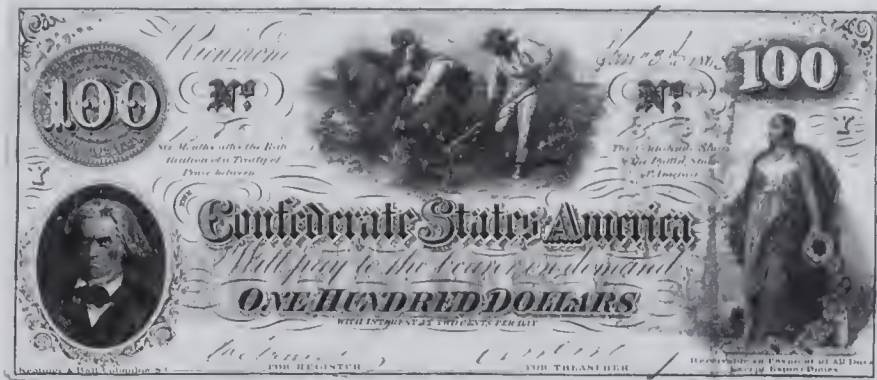 Richmond
100
100
No.
No.
Six Months after the Rati-
fication of a Treaty of
Peace between
The Confederate States
& The United States
of America
THE
Confederate States America
Will pay to the bearer on demand
ONE HUNDRED DOLLARS
WITH INTEREST AT TWO CENTS PER DAY
FOR REGISTER
FOR TREASURER
Keatinge & Ball Columbia, S.C.
Receivable in Payment of All Dues
Except Export Duties